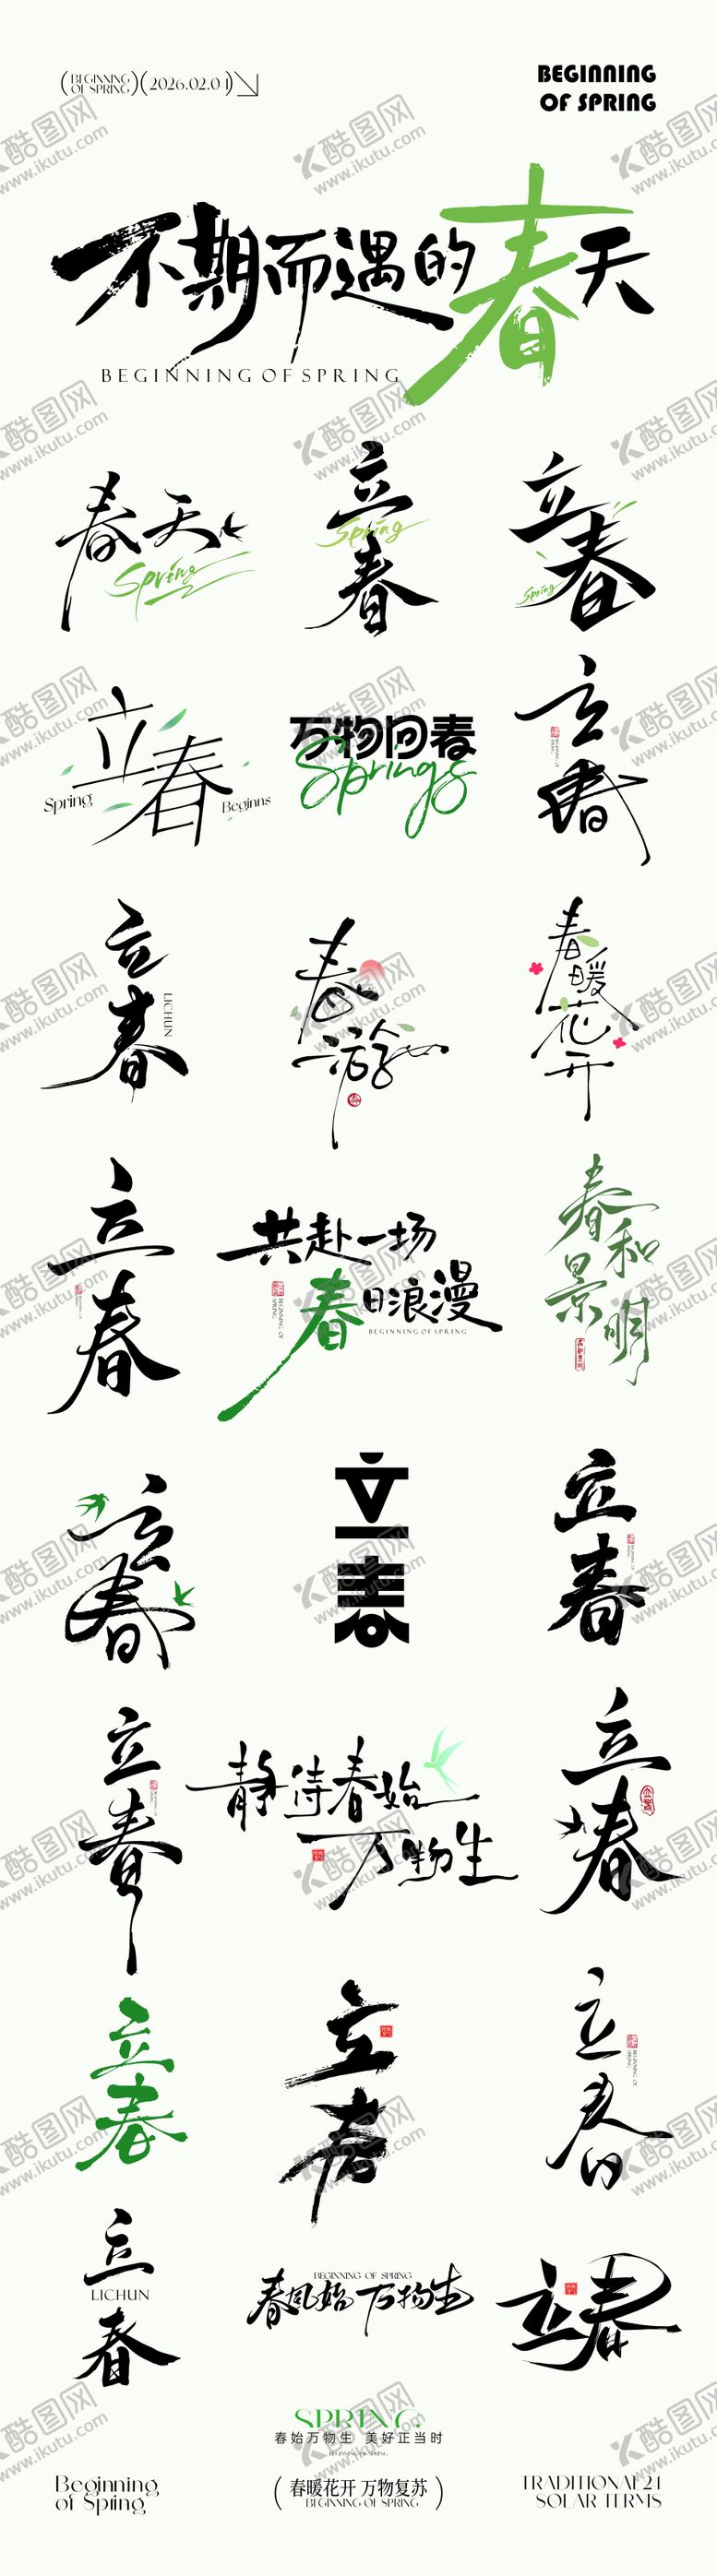 (BEGINNING OF SPRING)(2026.02.04)
BEGINNING
OF SPRING
不期而遇的春天
BEGINNING OF SPRING
春天
Spring
立春
Spring
立春
Spring
立春
Spring
Beginns
万物回春
Springs
立春
立春
LICHUN
春游
春暖花开
立春
共赴一场
春日浪漫
BEGINNING OF SPRING
BEGINNING OF SPRING
春和景明
立春
立春
立春
立春
静待春始
万物生
立春
立春
立春
立春
BEGINNING OF SPRING
立春
LICHUN
BEGINNING OF SPRING
春风始万物生
立春
SPRING
春始万物生 美好正当时
BEGINNING OF SPRING
Beginning
of Spring
(春暖花开 万物复苏)
BEGINNING OF SPRING
TRADITIONAL 24
SOLAR TERMS
酷图网
www.ikutu.com